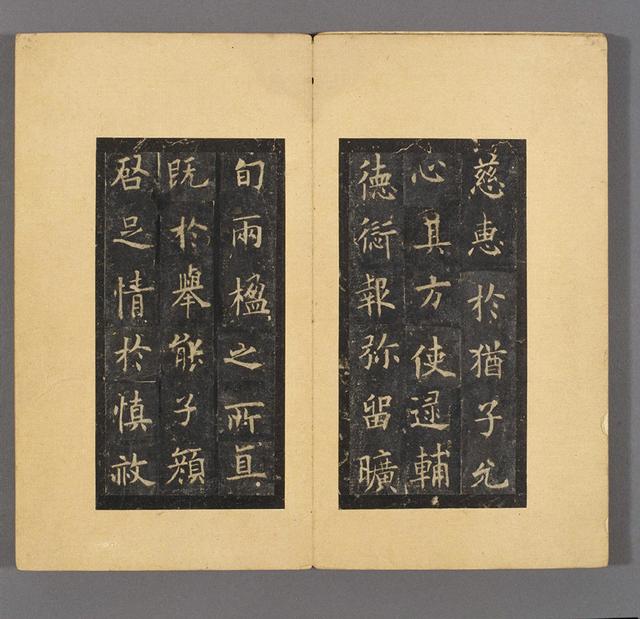 慈惠於猶子允
心其方使逯輔
德衒報弥留曠
旬兩楹之所真
既於舉能子顔
啓足情於慎